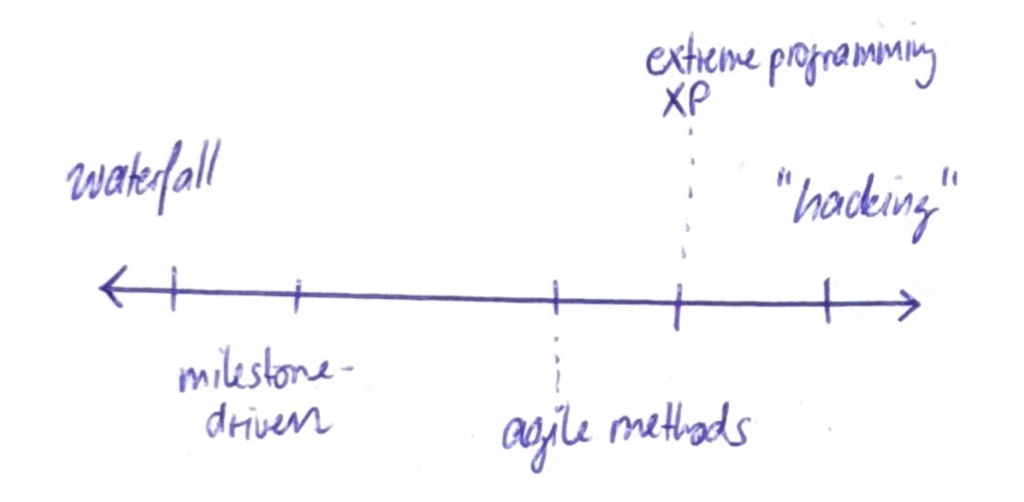 extreme programming
XP
waterfall
"hacking"
milestone-
driven
agile methods